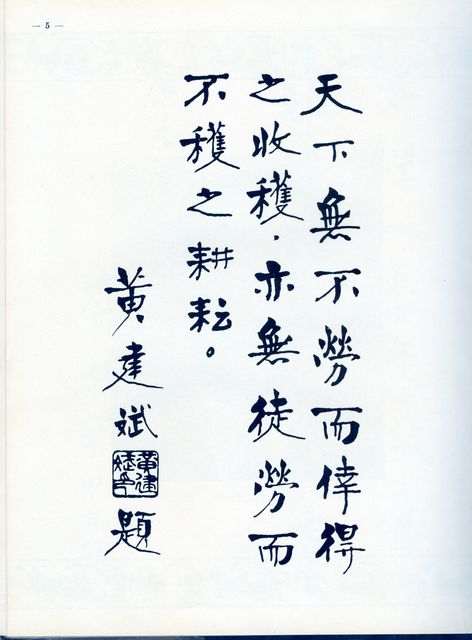 — 5 —
天下無不勞而倖得
之收穫,亦無徒勞而
不穫之耕耘。
黃建斌題
黃建斌印